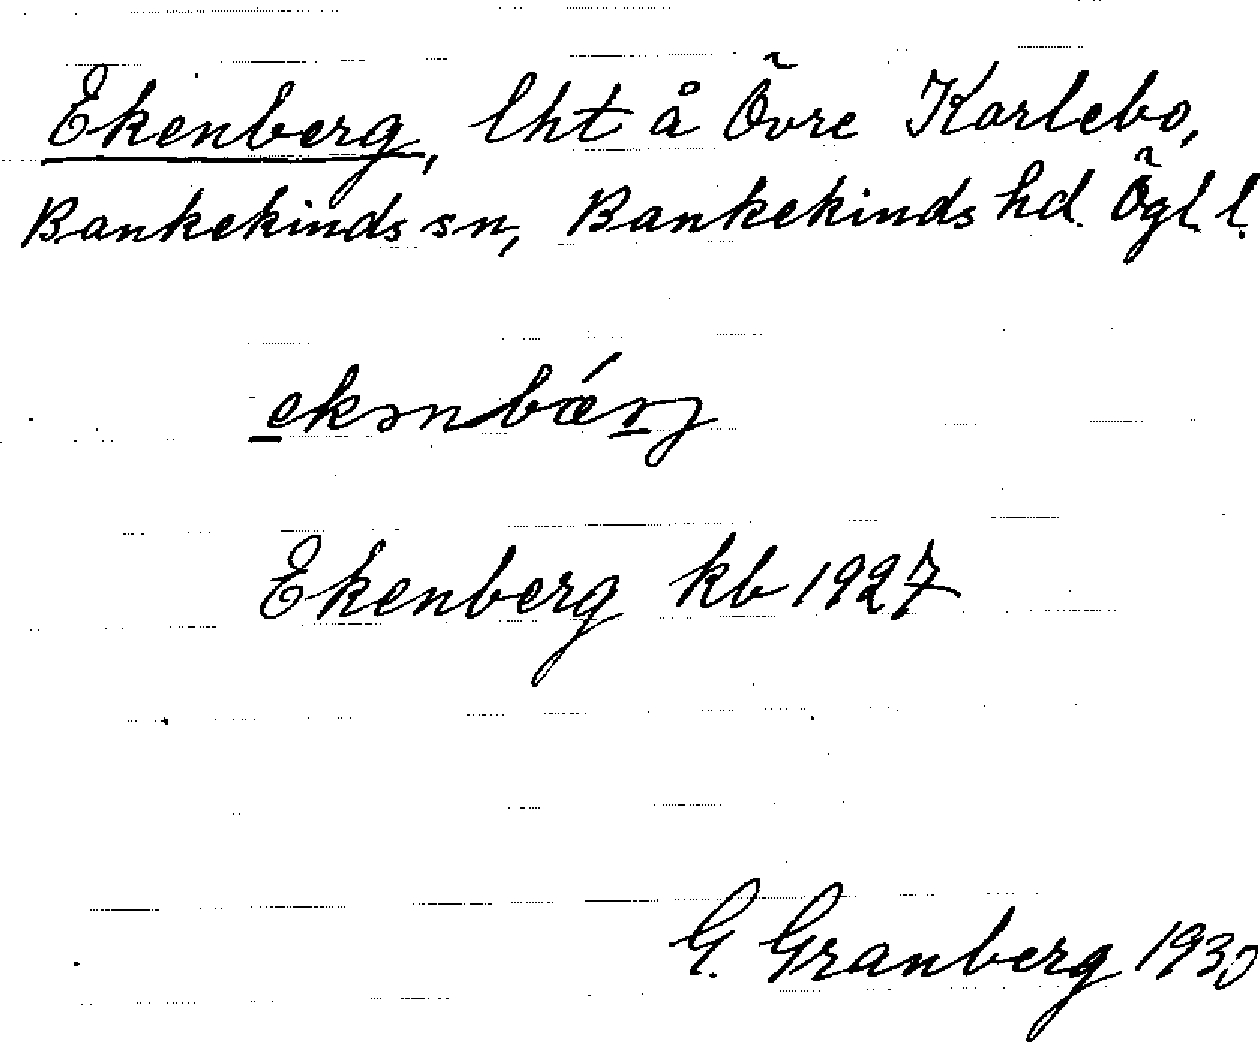 Ekenberg, lht å Övre Karlebo,
Bankekinds sn, Bankekinds hd. Ögl. l.
ekənbærj
Ekenberg kb 1927
G. Granberg 1930